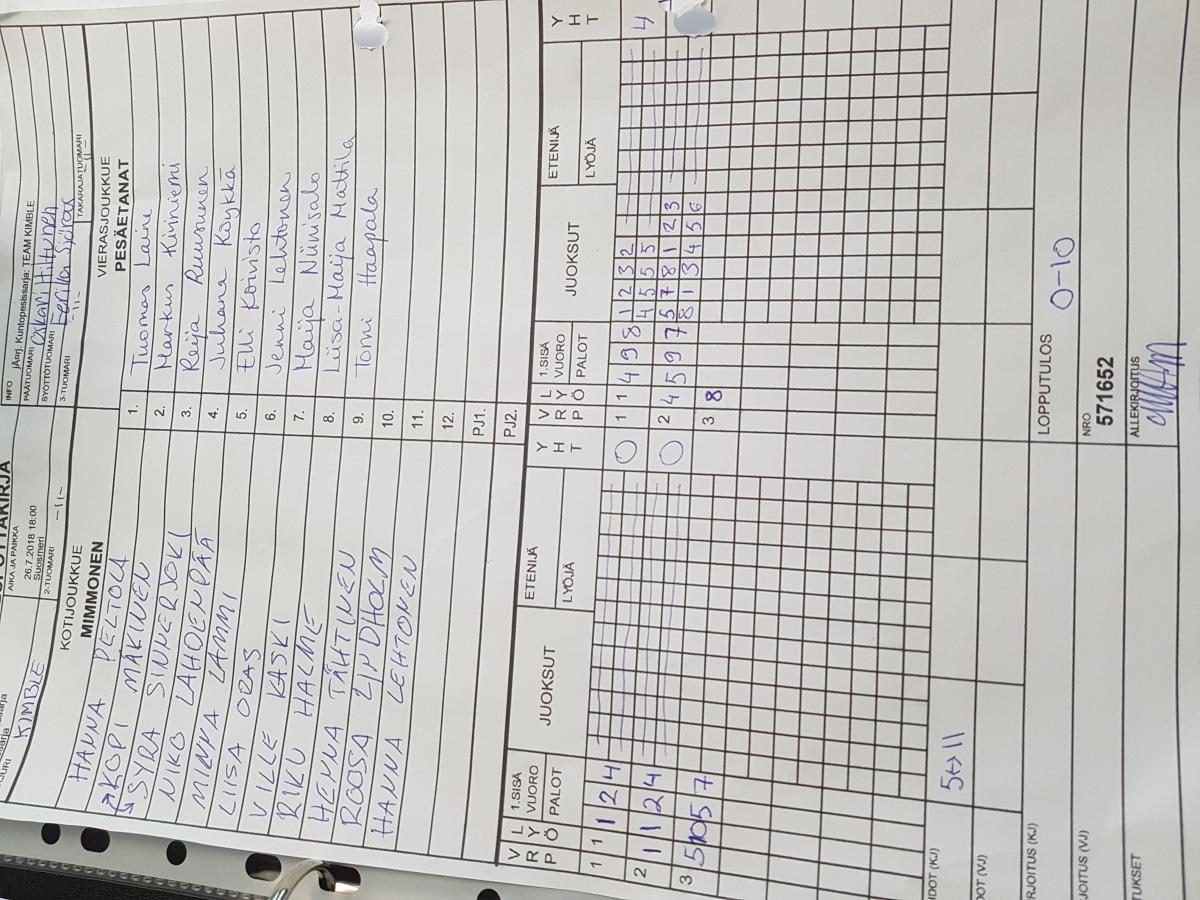 PÖYTÄKIRJA
KIMBLE
AIKA JA PAIKKA
26.7.2018 18:00
Suosmeri
2-TUOMARI
-11-
INFO jÄrj. Kuntopesissarja: TEAM KIMBLE
PÄÄTUOMARI
SYÖTTÖTUOMARI
3-TUOMARI
-11-
TAKARAJATUOMARI
-11-
KOTIJOUKKUE
MIMMONEN
HANNA PELTOLA
KOPI MÄKINEN
SYRA SINNERJOKI
NIKO LAHDENPÄÄ
MINNA LAMMI
LIISA ORAS
VILLE KASKI
RIKU HALME
HENNA TÄHTINEN
ROOSA LINDHOLM
HANNA LEHTONEN
VIERASJOUKKUE
PESÄETANAT
1. Tuomas Laine
2. Markus Kiviniemi
3. Reija Ruusunen
4. Juhana Köykkä
5. Elli Koivisto
6. Jenni Lehtonen
7. Maija Niinisalo
8. Liisa-Maija Mattila
9. Tomi Haapala
10.
11.
12.
PJ1.
PJ2.
VRP LYÖ 1.SISÄ VUORO PALOT JUOKSUT ETENIJÄ LYÖJÄ YHT
1 1 1 2 4 0
2 1 1 2 4 0
3 5 10 5 7
VRP LYÖ 1.SISÄ VUORO PALOT JUOKSUT ETENIJÄ LYÖJÄ YHT
1 1 4 9 8 1 2 3 2 4
4 5 5 5
2 4 5 9 7 5 7 8 1 2 3
8 1 3 4 5 6
3 8
5↔11
LOPPUTULOS
0-10
NRO
571652
ALLEKIRJOITUS